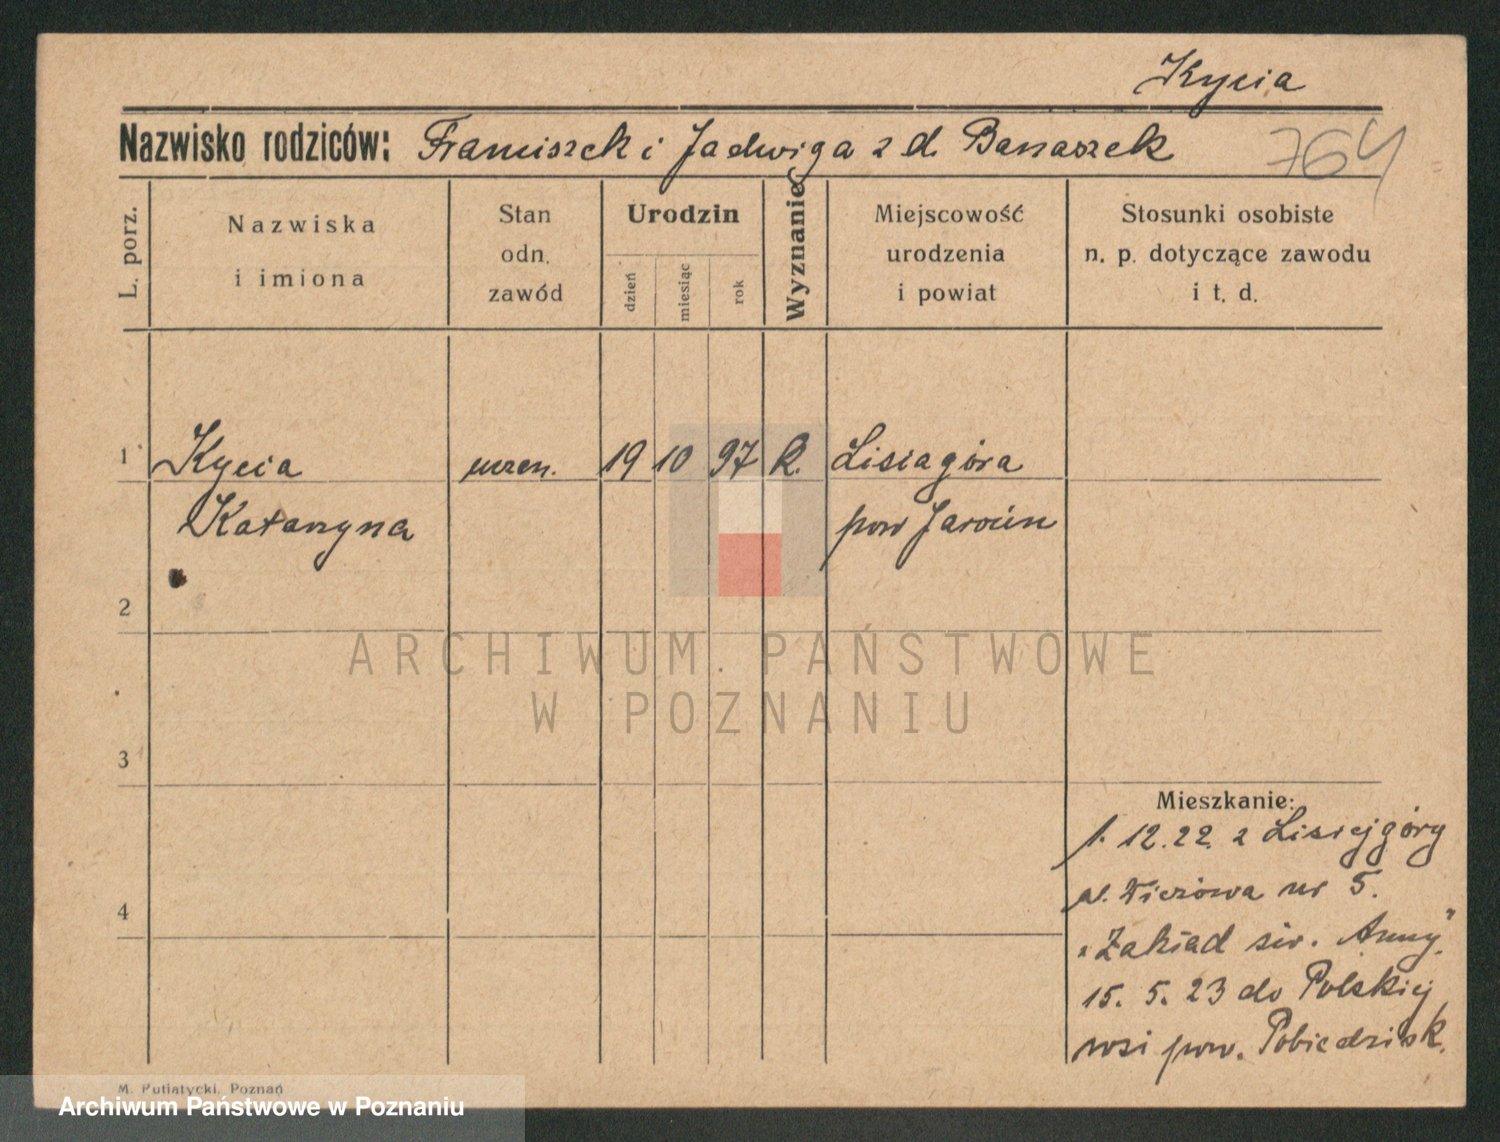 Kycia
Nazwisko rodziców: Franciszek i Jadwiga z d. Banaszek
764
L. porz.
Nazwiska
i imiona
Stan
odn.
zawód
Urodzin
dzień
miesiąc
rok
Wyznanie
Miejscowość
urodzenia
i powiat
Stosunki osobiste
n. p. dotyczące zawodu
i t. d.
1 Kycia uczen. 19 10 97 k. Lisiagóra
Katarzyna pow Jarocin
2
ARCHIWUM PAŃSTWOWE
W POZNANIU
3
Mieszkanie:
1. 12. 22. z Lisiejgóry
ul. Wieżowa nr 5.
4
"Zakład św. Anny".
15. 5. 23 do Polskiej
wsi pow. Pobiedzisk.
M. Putiatycki, Poznań
Archiwum Państwowe w Poznaniu